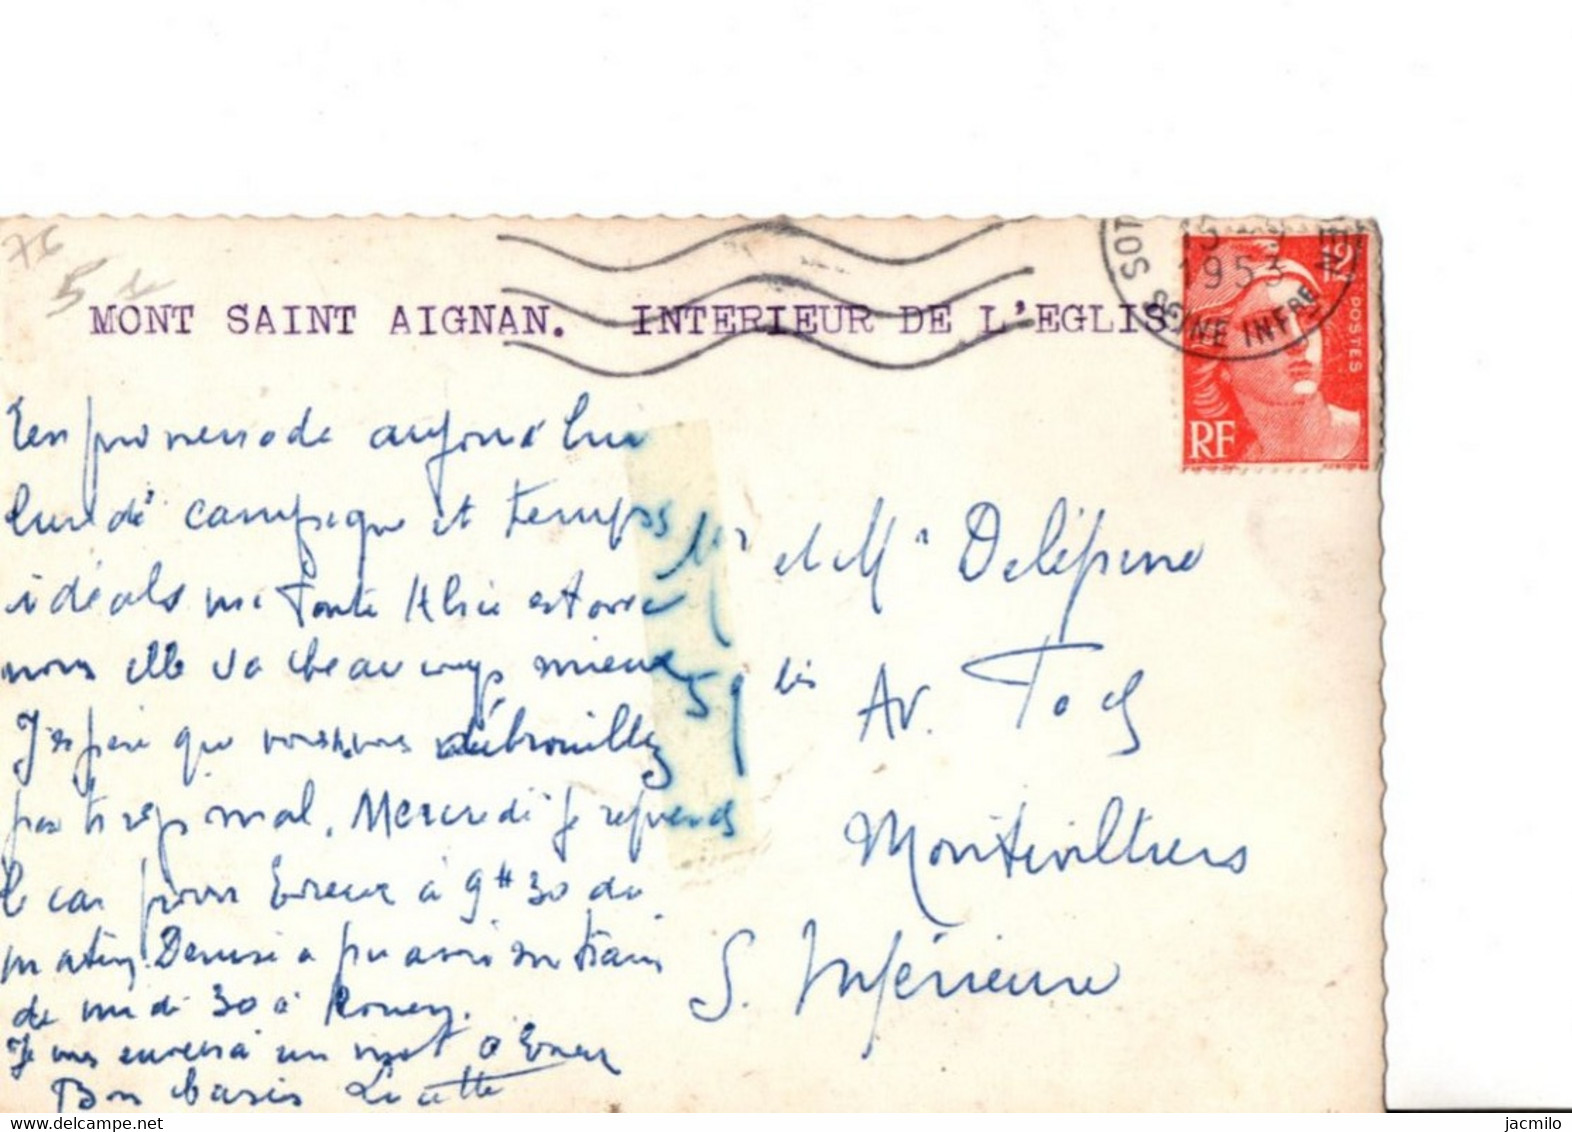 76
5
MONT SAINT AIGNAN. INTERIEUR DE L'EGLIS
SOT
15 - 9
1953
SEINE INFRE
12F
POSTES
RF
En promenade aujourd'hui
lundi campagne et temps
idéals ma Tante Alice est avec
nous elle va beaucoup mieux
J'espère que vous vous débrouillez
pas trop mal. Mercredi je reprends
le car pour Evreux à 9H30 du
matin. Denise a pu avoir un train
de midi 30 à Rouen.
Je vous enverrai un mot d'Evreux
Bon baisers Lucette
Mr et Me Delépine
59 bis Av. Foch
Montivilliers
S. Inférieure
jacmilo